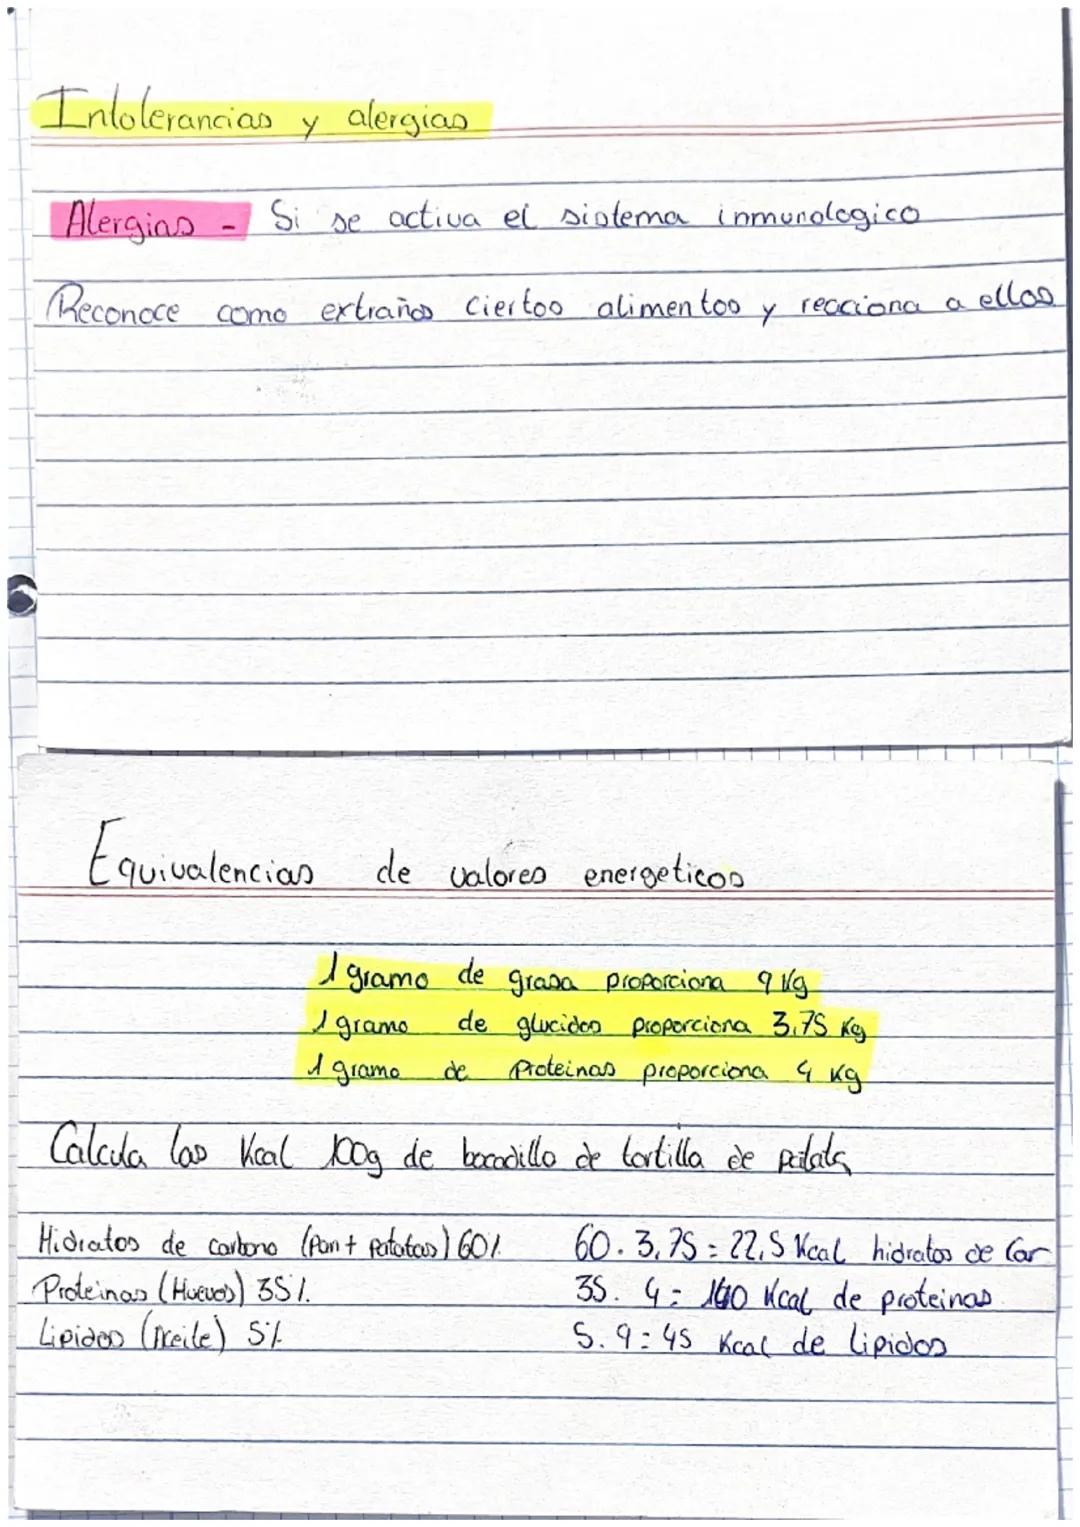 Intolerancias y alergias
Alergias - Si se activa el sistema inmunologico
Reconoce como extraños ciertos alimentos y reacciona a ellos
Equivalencias de valores energeticos
1 gramo de grasa proporciona 9 Kg
1 gramo de glucidos proporciona 3,75 Kg
1 gramo de Proteinas proporciona 4 Kg
Calcula las Kcal 100g de bocadillo de tortilla de patata
Hidratos de carbono (Pan + Patatas) 60% 60 . 3,75 = 22,5 Kcal hidratos de Car
Proteinas (Huevos) 35%. 35 . 4 = 140 Kcal de proteinas
Lipidos (Aceite) 5% 5 . 9 = 45 Kcal de lipidos